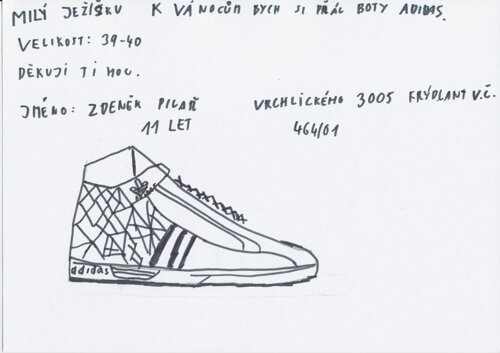 MILÝ JEŽÍŠKU K VÁNOCŮM BYCH SI PŘÁL BOTY ADIDAS.
VELIKOST: 39-40
DĚKUJI TI MOC.
JMÉNO: ZDENĚK PILAŘ VRCHLICKÉHO 3005 FRÝDLANT V.Č.
11 LET 464/01
adidas